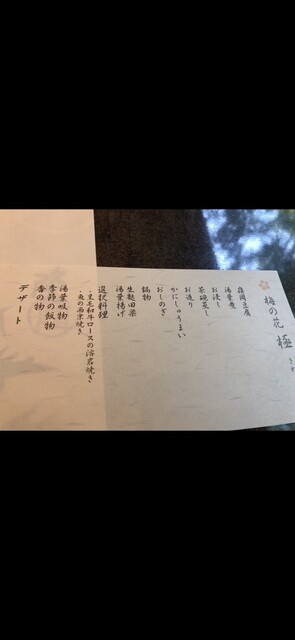 梅の花 極
きわ
嶺岡豆腐
湯葉煮
お浸し
茶碗蒸し
お造り
かにしゅうまい
おしのぎ
鍋物
生麩田楽
湯葉揚げ
選択料理
・黒毛和牛ロースの溶岩焼き
・魚の西京焼き
湯葉吸物
季節の飯物
香の物
デザート